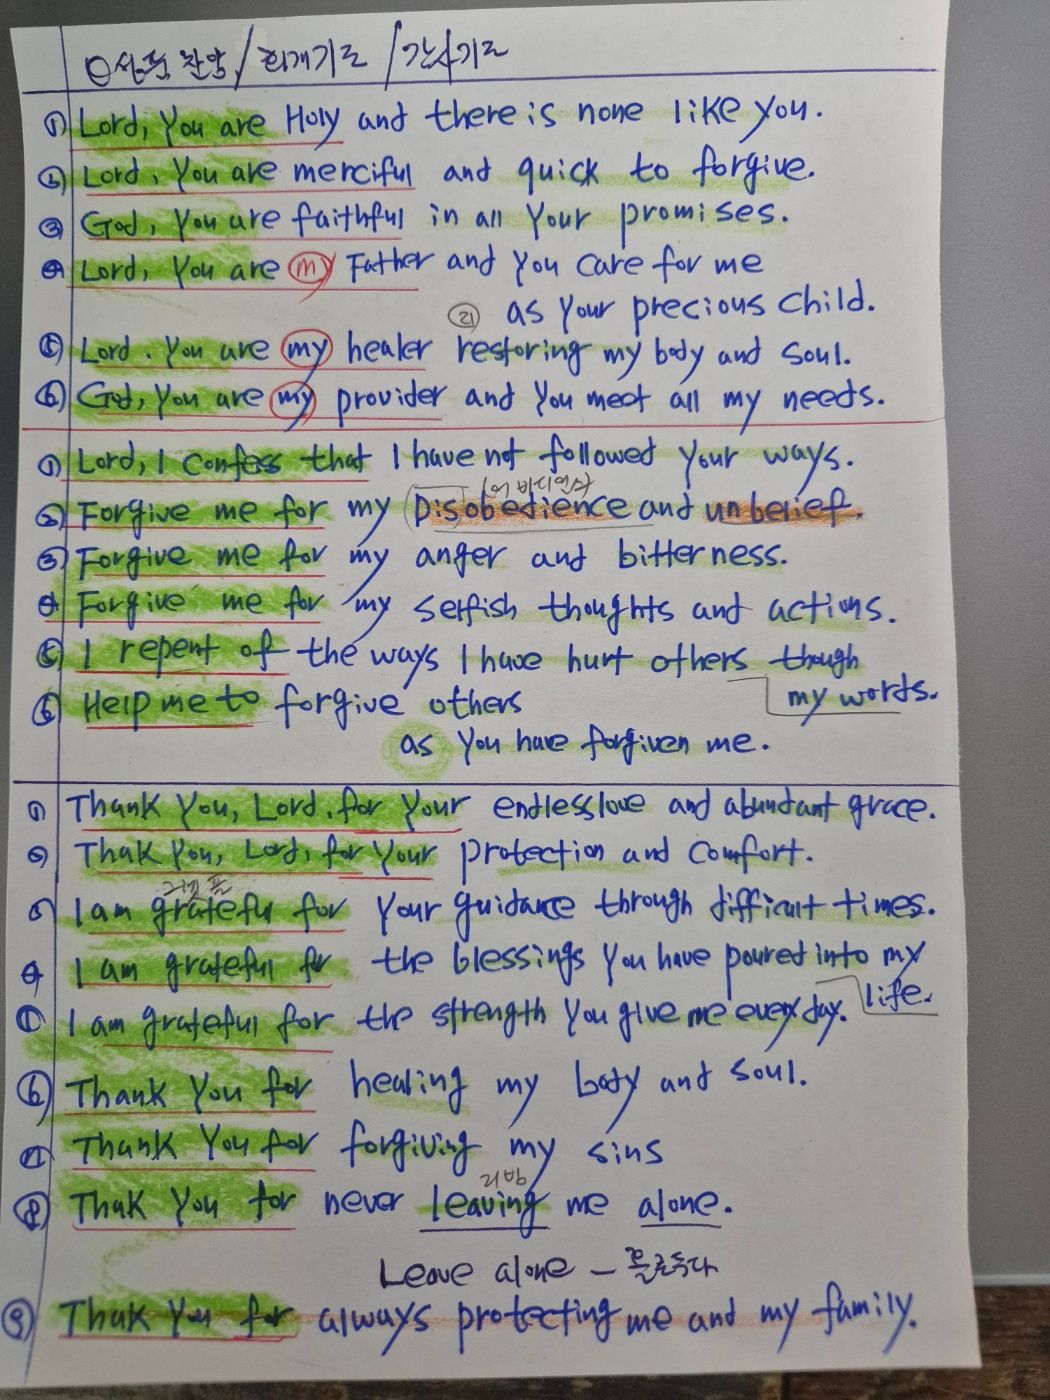 성품 찬양 / 회개기도 / 감사기도
① Lord, You are Holy and there is none like you.
② Lord, You are merciful and quick to forgive.
③ God, You are faithful in all Your promises.
④ Lord, You are my Father and you care for me
as your precious child.
⑤ Lord. You are my healer restoring my body and soul.
⑥ God, You are my provider and you meet all my needs.
① Lord, I confess that I have not followed your ways.
② Forgive me for my Disobedience and unbelief.
③ Forgive me for my anger and bitterness.
④ Forgive me for my selfish thoughts and actions.
⑤ I repent of the ways I have hurt others though
my words.
⑥ Help me to forgive others
as you have forgiven me.
① Thank You, Lord, for Your endless love and abundant grace.
② Thak You, Lord, for Your protection and comfort.
③ I am grateful for your guidance through difficult times.
④ I am grateful for the blessings you have poured into my
life.
⑤ I am grateful for the strength you give me every day.
⑥ Thank You for healing my body and soul.
⑦ Thank You for forgiving my sins
리빙
⑧ Thak You for never leaving me alone.
Leave alone – 홀로두다
⑨ Thak You for always protecting me and my family.